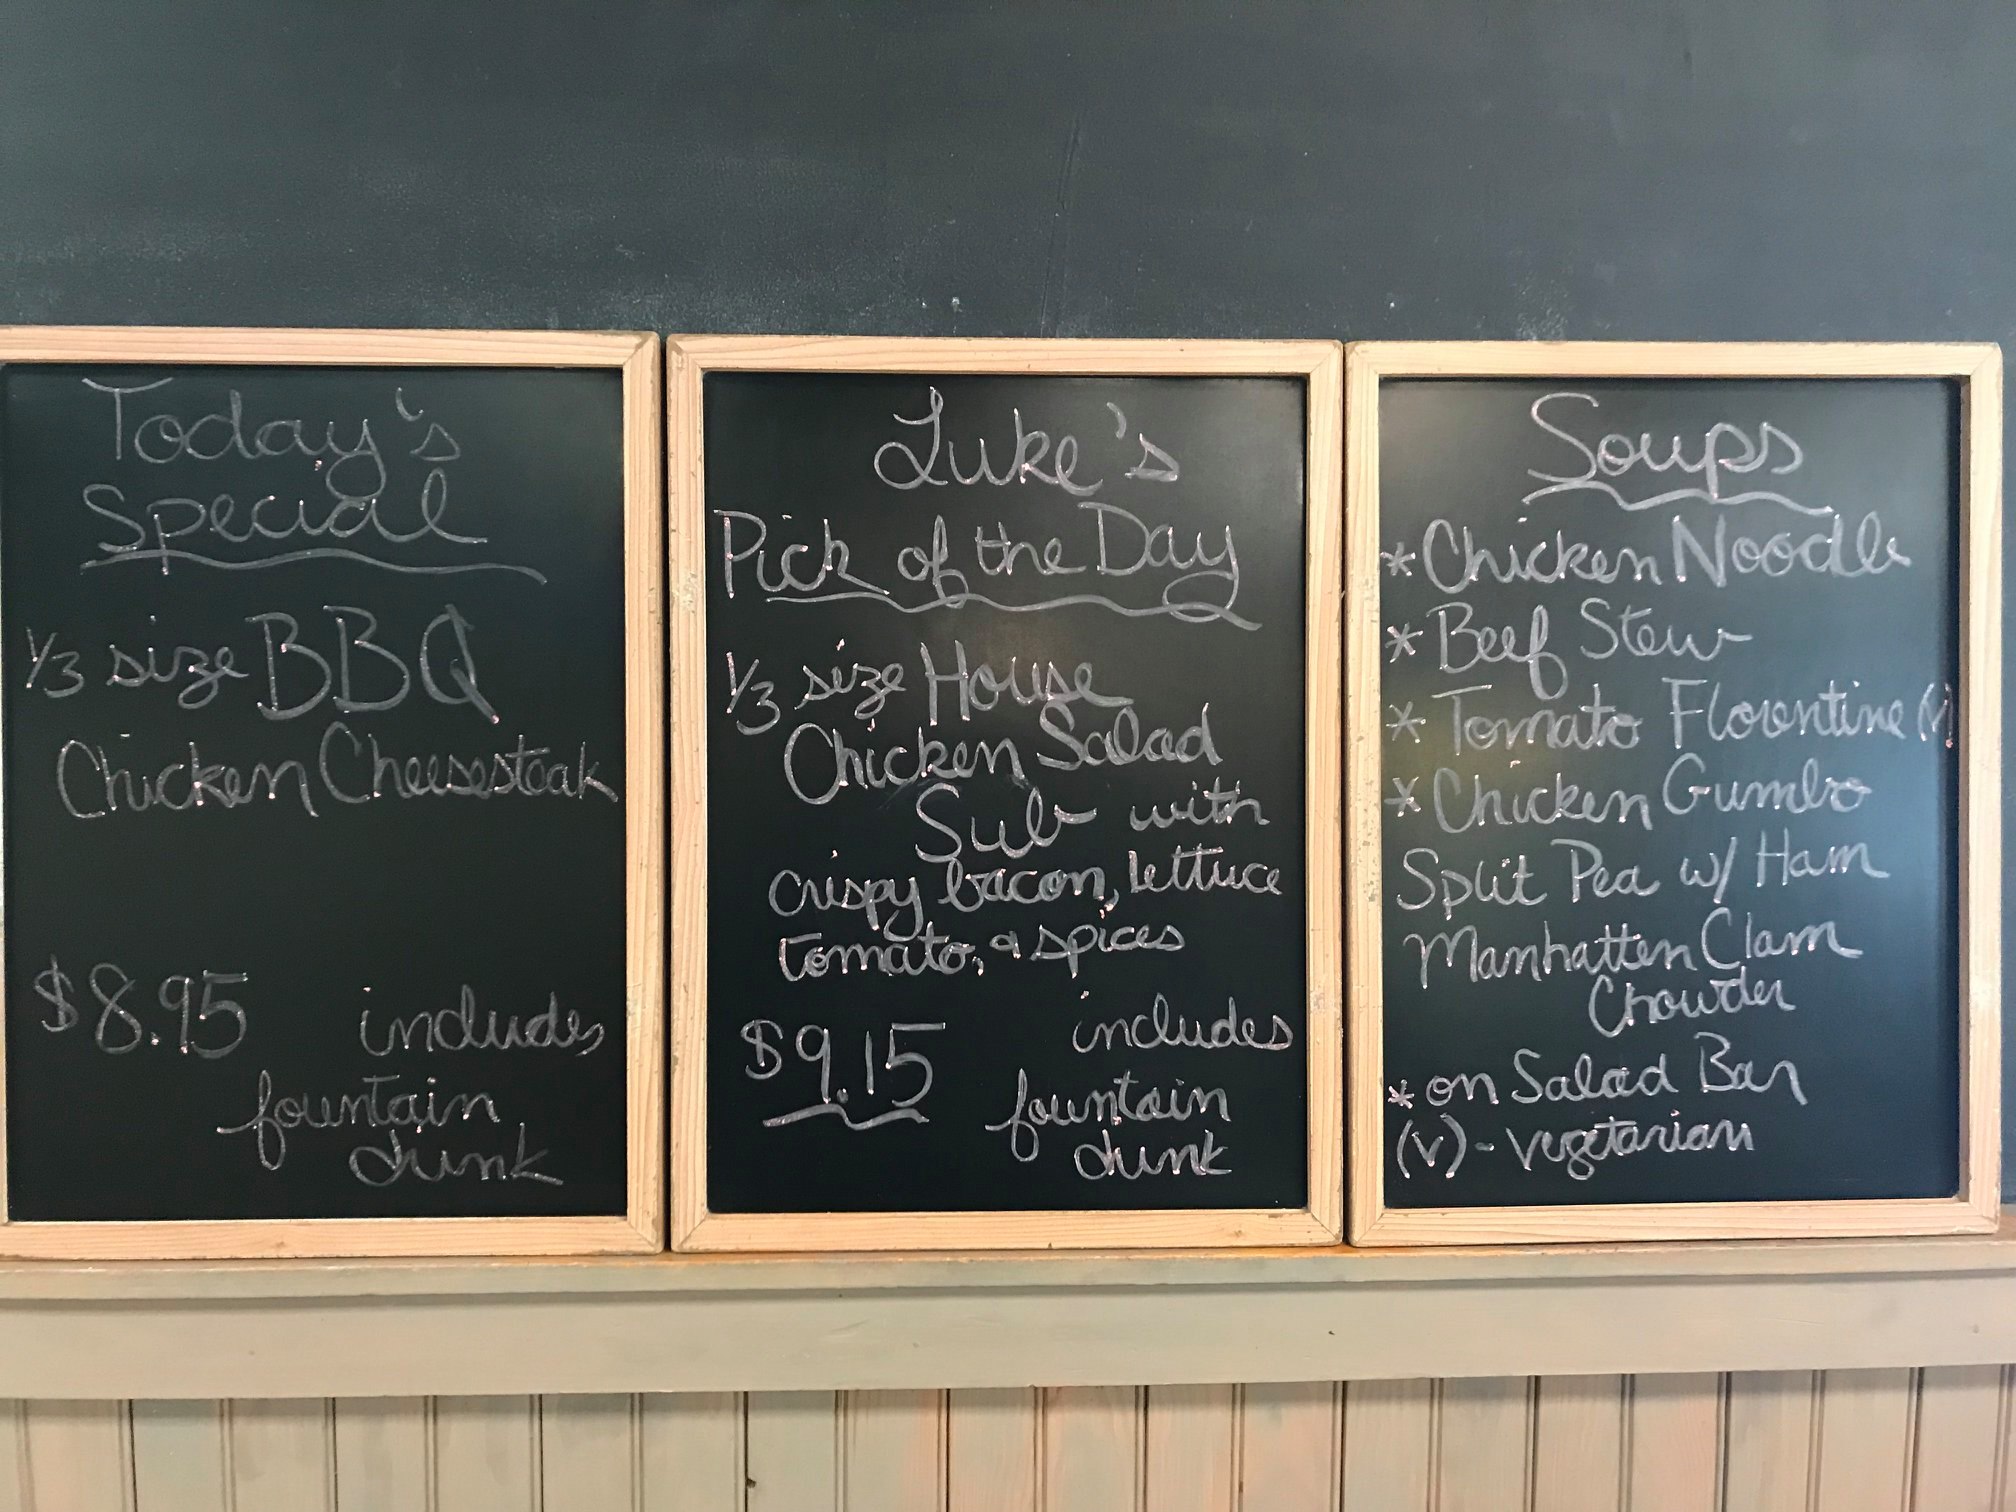 Today's
Special
1/3 size BBQ
Chicken Cheesesteak
$8.95 includes
fountain
drink
Luke's
Pick of the Day
1/3 size House
Chicken Salad
Sub with
crispy bacon, lettuce
tomato, & spices
$9.15 includes
fountain
drink
Soups
* Chicken Noodle
* Beef Stew
* Tomato Florentine (V)
* Chicken Gumbo
Split Pea w/ Ham
Manhatten Clam
Chowder
* on Salad Bar
(V) - vegetarian